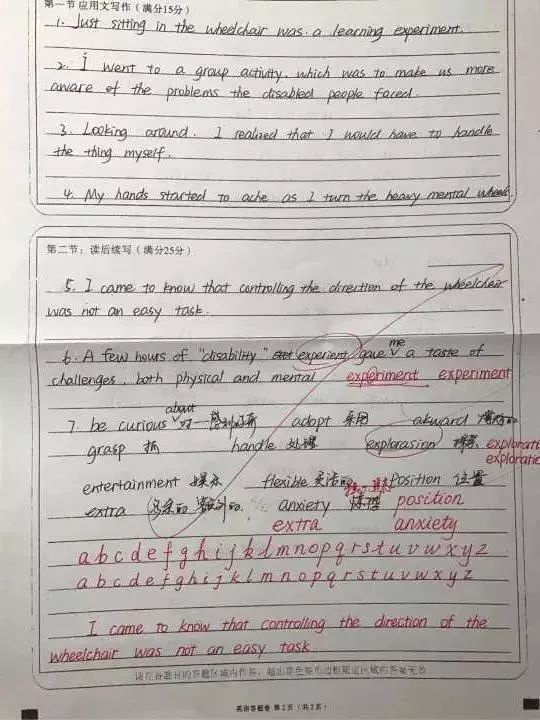 第一节 应用文写作(满分15分)
1. Just sitting in the wheelchair was a learning experiment.
2. I went to a group activity, which was to make us more
aware of the problems the disabled people faced.
3. Looking around, I realized that I would have to handle
the thing myself.
4. My hands started to ache as I turn the heavy mental wheels.
第二节:读后续写(满分25分)
5. I came to know that controlling the direction of the wheelchair
was not an easy task.
me
6. A few hours of "disability" experient gave a taste of
challenges, both physical and mental experiment experiment
about
7. be curious 对…感到好奇 adopt 采用 akward
grasp 抓 handle 处理 explorasion 探索
entertainment 娱乐 flexible 灵活的 position 位置
extra 额外的 anxiety position
extra anxiety
a b c d e f g h i j k l m n o p q r s t u v w x y z
a b c d e f g h i j k l m n o p q r s t u v w x y z
I came to know that controlling the direction of the
wheelchair was not an easy task
请在各题目的答题区域内作答,超出黑色矩形边框限定区域的答案无效
英语答题卷 第2页(共2页)